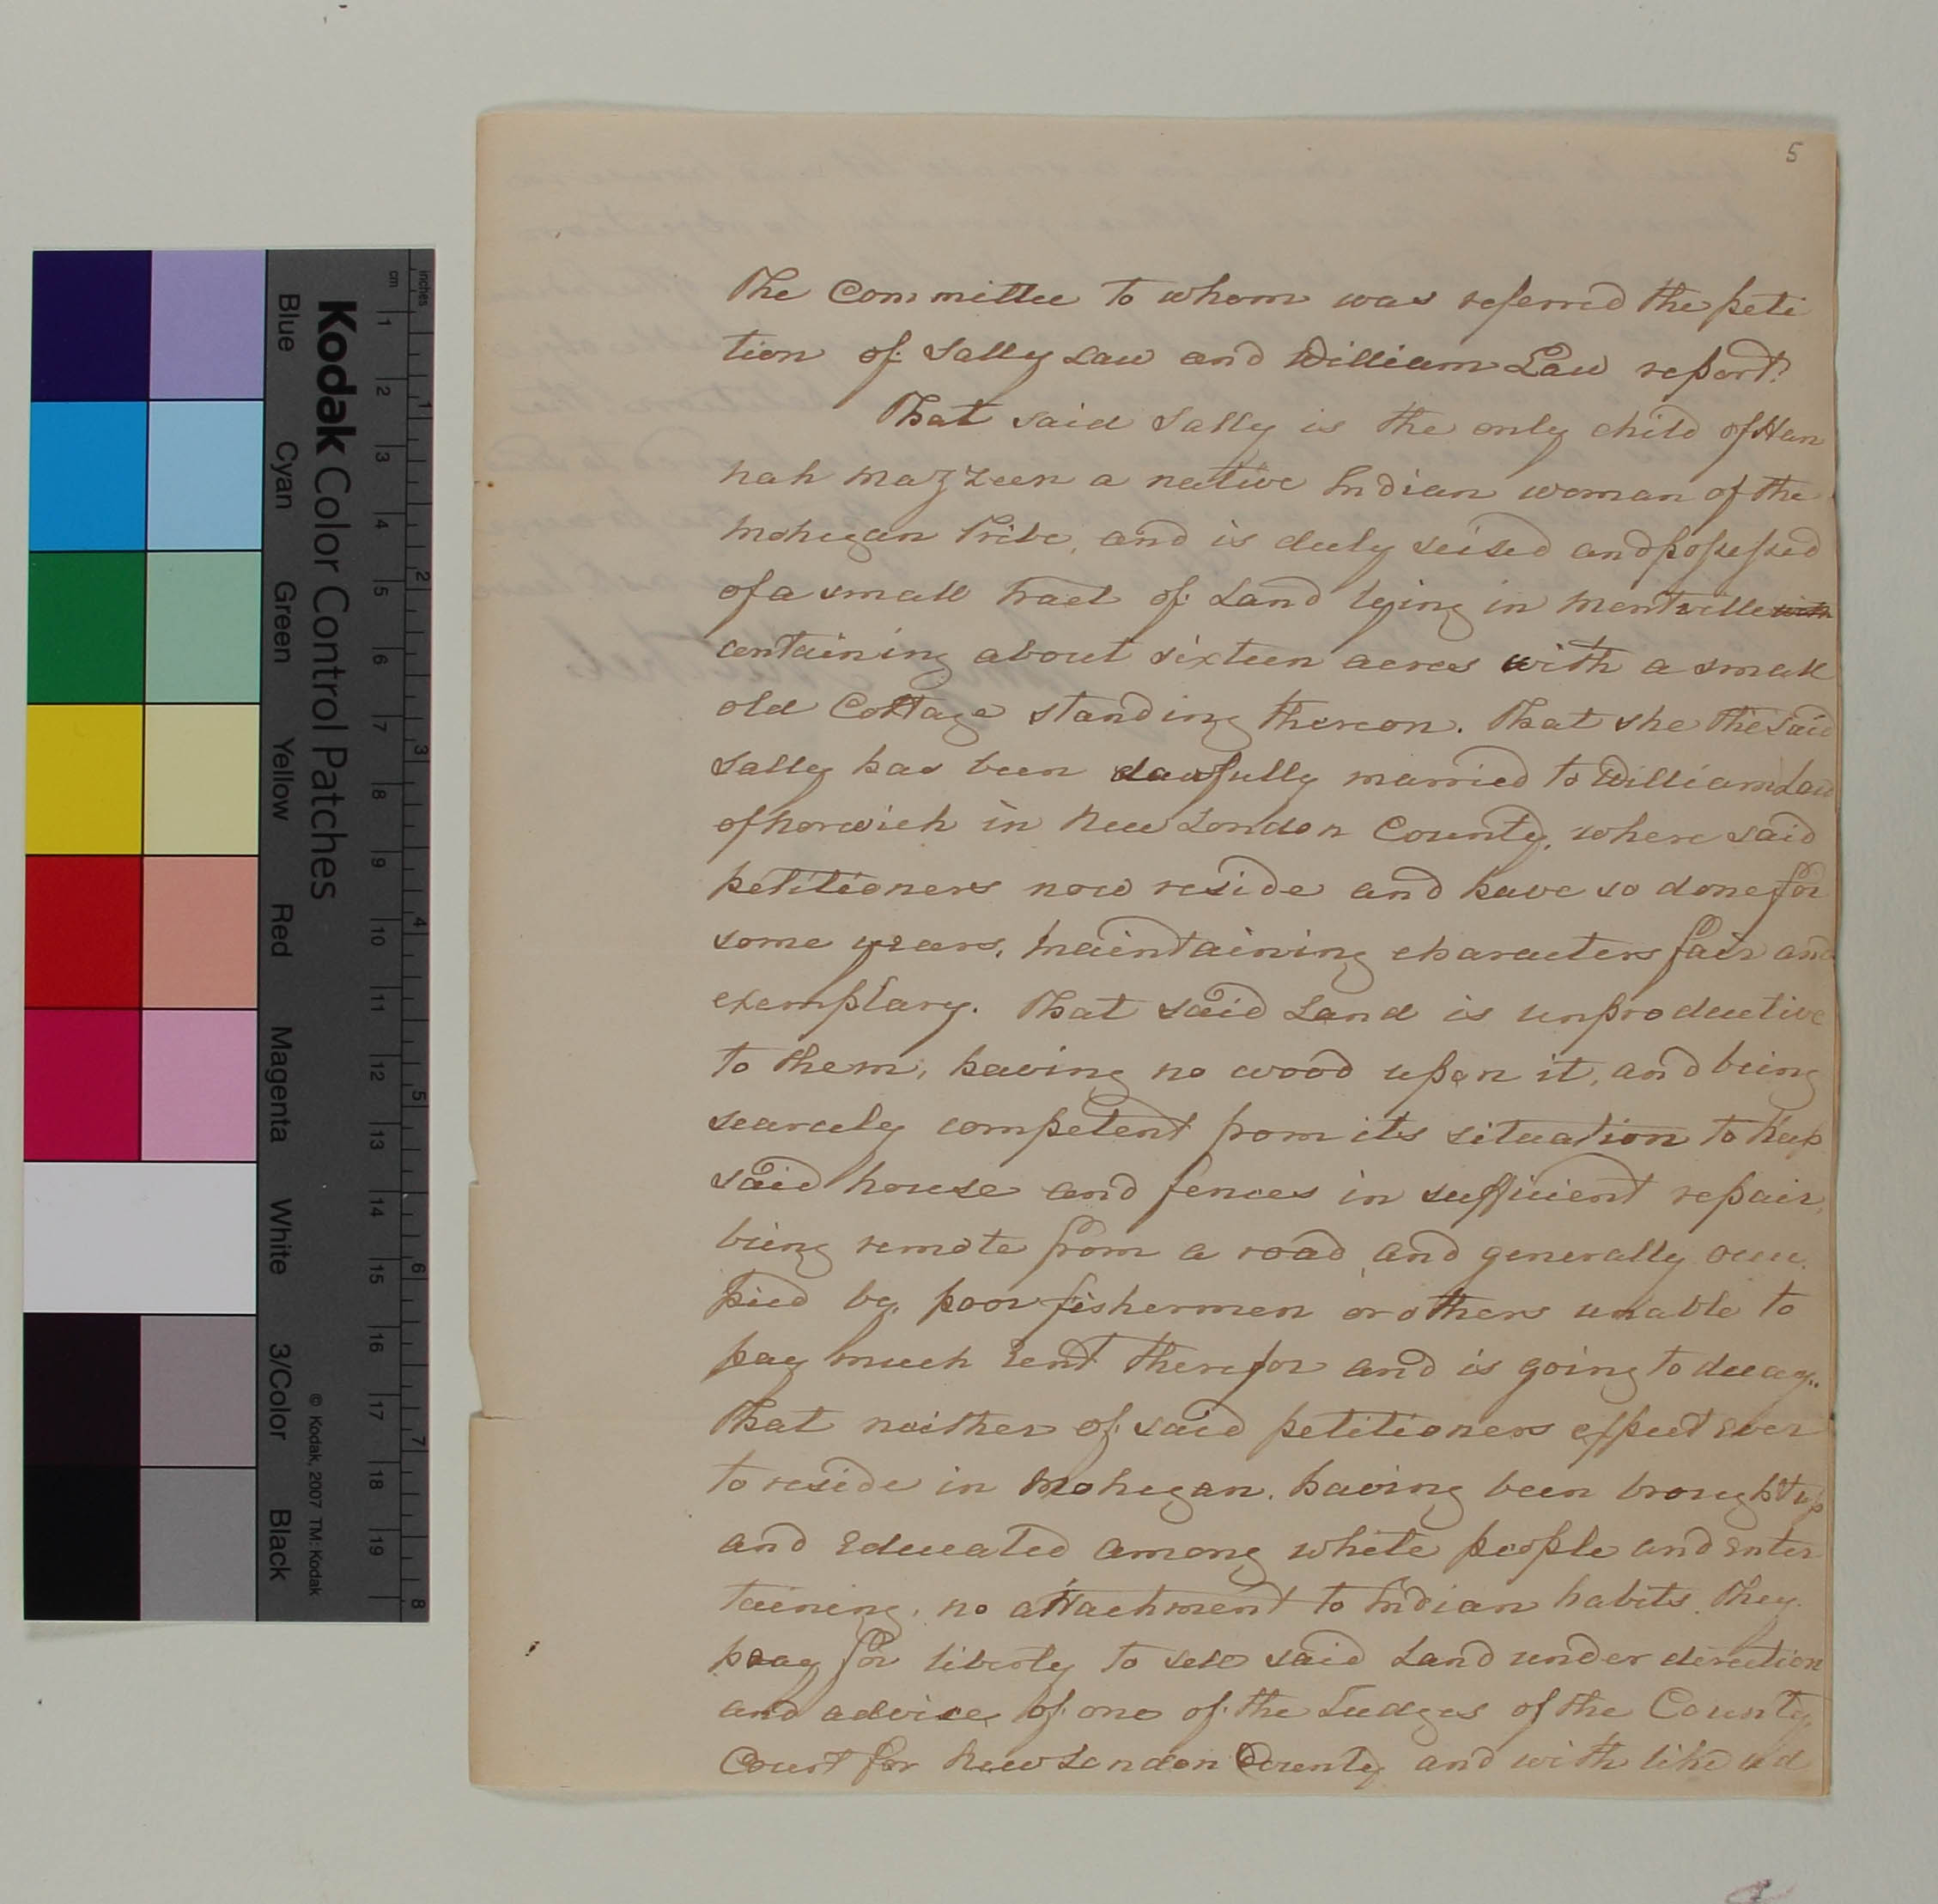 5
The Committee to whom was referred the peti
tion of Sally Law and William Law report.
That said Sally is the only child of Han
nah Mazzeen a native Indian woman of the
Mohegan Tribe, and is duly seised and possessed
of a small Tract of Land lying in Montville with
containing about sixteen acres with a small
old Cottage standing thereon. That she the said
Sally has been lawfully married to William Law
of Norwich in New London County, where said
petitioners now reside and have so done for
some years, Maintaining characters fair and
exemplary. That said Land is unproductive
to them, having no wood upon it, and being
scarcely competent from its situation to keep
said house and fences in sufficient repair,
being remote from a road and generally occu
pied by poor fishermen or others unable to
pay much Rent therefor and is going to decay.
That neither of said petitioners expect ever
to reside in Mohegan, having been brought up
and Educated among white people and enter
taining no attachment to Indian habits. They
pray for liberty to sell said Land under direction
and advice of one of the Judges of the County
Court for New London County and with like ad
Kodak Color Control Patches
Blue Cyan Green Yellow Red Magenta White 3/Color Black
© Kodak, 2007 TM: Kodak
inches 1 2 3 4 5 6 7 8
cm 1 2 3 4 5 6 7 8 9 10 11 12 13 14 15 16 17 18 19